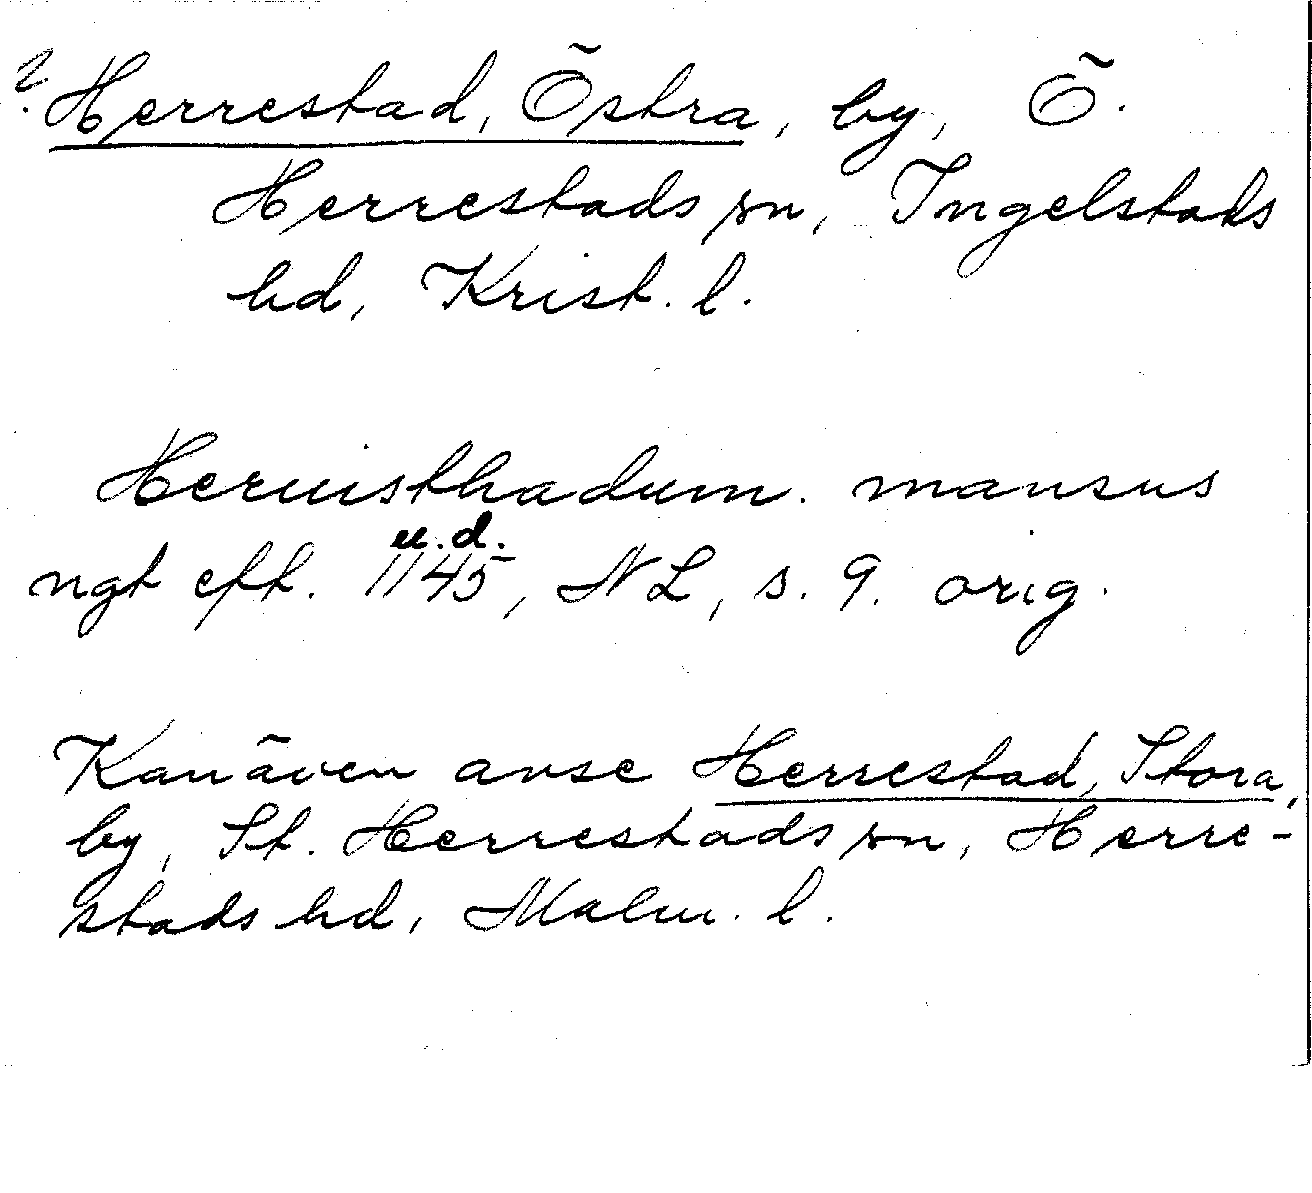 ? Herrestad, Östra, by, Ö.
Herrestads sn, Ingelstads
hd, Krist. l.
Heruisthadum. mansus
u. d.
ngt eft. 1145, NL, s. 9. orig.
Kan även avse Herrestad, Stora,
by, St. Herrestads sn, Herre-
stads hd, Malm. l.